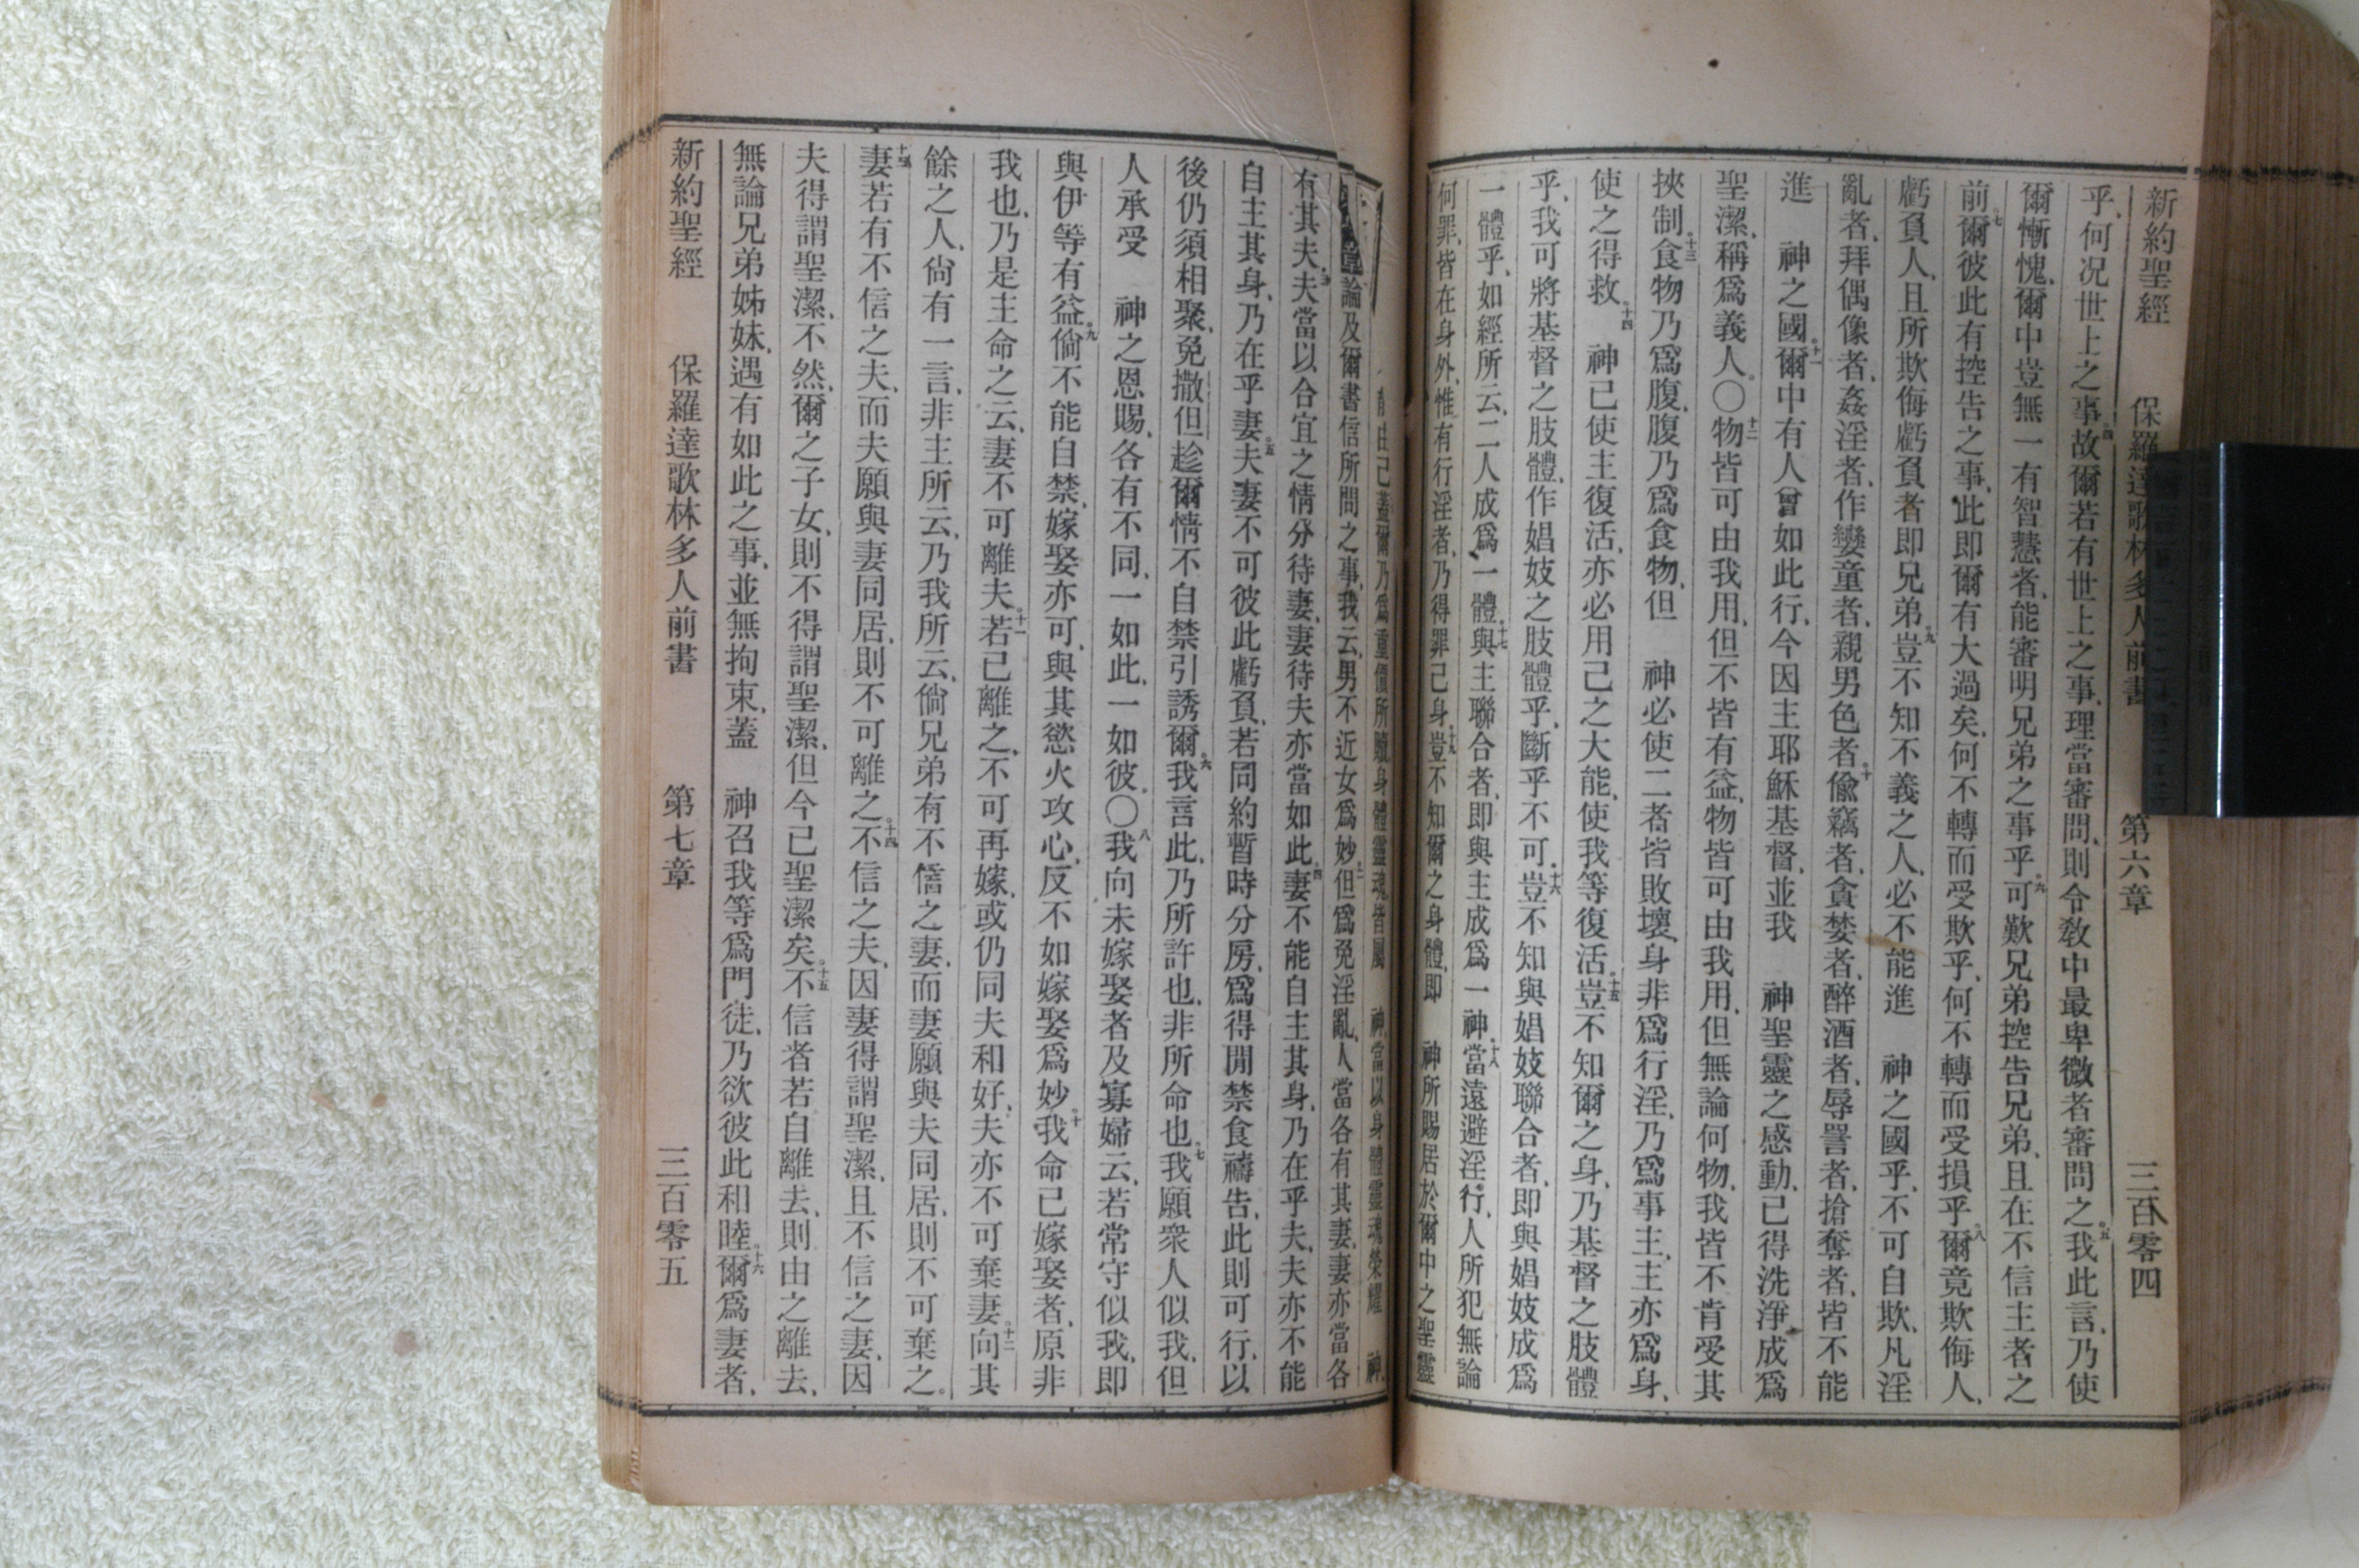 新約聖經 保羅達歌林多人前書 第六章 三百零四
乎、何况世上之事。四故爾若有世上之事、理當審問、則令敎中最卑微者審問之。五我此言、乃使
爾慚愧、爾中豈無一有智慧者、能審明兄弟之事乎。六可歎兄弟控吿兄弟、且在不信主者之
前。七爾彼此有控吿之事、此即爾有大過矣、何不轉而受欺乎、何不轉而受損乎。八爾竟欺侮人、
虧負人、且所欺侮虧負者即兄弟。九豈不知不義之人、必不能進 神之國乎、不可自欺、凡淫
亂者、拜偶像者、姦淫者、作孌童者、親男色者、十偸竊者、貪婪者、醉酒者、辱詈者、搶奪者、皆不能
進 神之國。十一爾中有人曾如此行、今因主耶穌基督、並我 神聖靈之感動、已得洗淨成爲
聖潔、稱爲義人。〇十二物皆可由我用、但不皆有益、物皆可由我用、但無論何物、我皆不肯受其
挾制。十三食物乃爲腹、腹乃爲食物、但 神必使二者皆敗壞、身非爲行淫、乃爲事主、主亦爲身、
使之得救。十四 神已使主復活、亦必用己之大能、使我等復活。十五豈不知爾之身、乃基督之肢體
乎、我可將基督之肢體、作娼妓之肢體乎、斷乎不可。十六豈不知與娼妓聯合者、即與娼妓成爲
一體乎、如經所云、二人成爲一體。十七與主聯合者、即與主成爲一神。十八當遠避淫行、人所犯無論
何罪、皆在身外、惟有行淫者、乃得罪己身。十九豈不知爾之身體、即 神所賜居於爾中之聖靈
由己、蓋爾乃爲重價所贖、身體靈魂、皆屬 神、當以身體靈魂榮耀 神、
章論及爾書信所問之事、我云、男不近女爲妙。二但爲免淫亂、人當各有其妻、妻亦當各
有其夫。三夫當以合宜之情分待妻、妻待夫亦當如此。四妻不能自主其身、乃在乎夫、夫亦不能
自主其身、乃在乎妻。五夫妻不可彼此虧負、若同約暫時分房、爲得閒禁食禱吿、此則可行、以
後仍須相聚、免撒但趁爾情不自禁引誘爾。六我言此、乃所許也、非所命也。七我願衆人似我、但
人承受 神之恩賜、各有不同、一如此、一如彼。〇八我向未嫁娶者及寡婦云、若常守似我、即
與伊等有益。九倘不能自禁、嫁娶亦可、與其慾火攻心、反不如嫁娶爲妙。十我命已嫁娶者、原非
我也、乃是主命之云、妻不可離夫。十一若已離之、不可再嫁、或仍同夫和好、夫亦不可棄妻。十二向其
餘之人、尙有一言、非主所云、乃我所云、倘兄弟有不信之妻、而妻願與夫同居、則不可棄之。
十三妻若有不信之夫、而夫願與妻同居、則不可離之。十四不信之夫、因妻得謂聖潔、且不信之妻、因
夫得謂聖潔、不然、爾之子女、則不得謂聖潔、但今已聖潔矣。十五不信者若自離去、則由之離去、
無論兄弟姊妹、遇有如此之事、並無拘束、蓋 神召我等爲門徒、乃欲彼此和睦。十六爾爲妻者、
新約聖經 保羅達歌林多人前書 第七章 三百零五